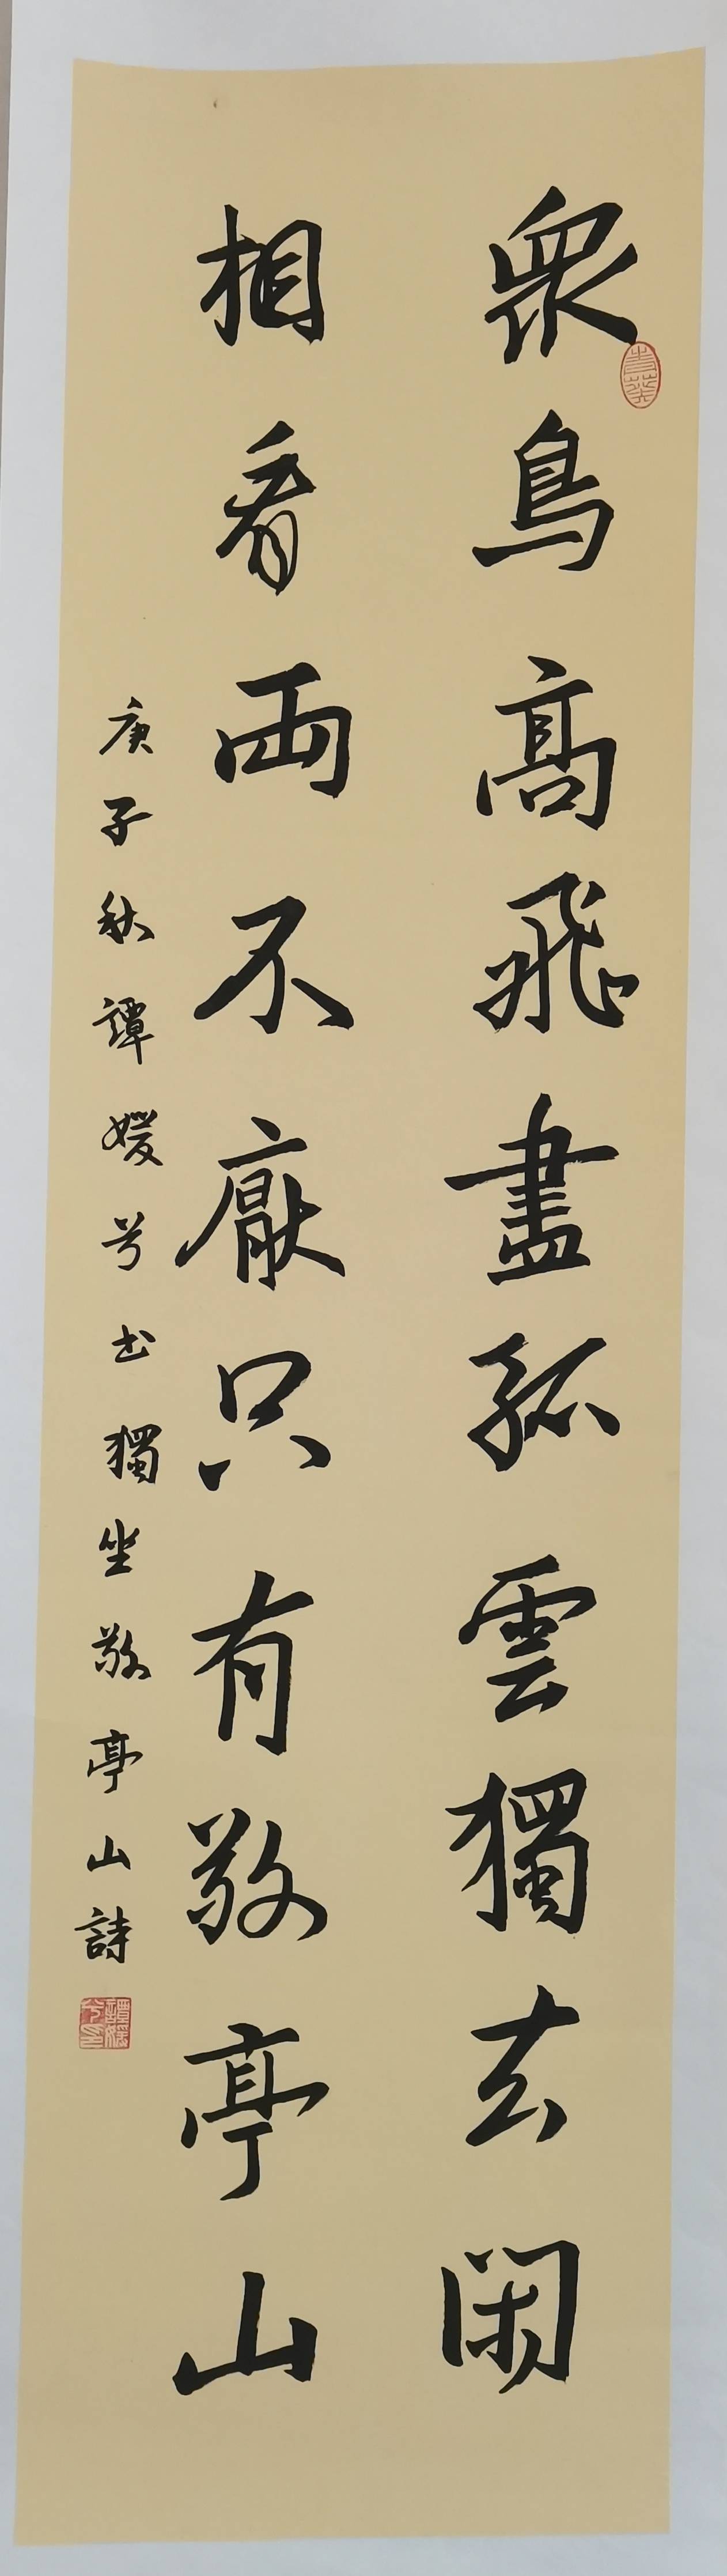 眾鳥高飛盡孤雲獨去閑
相看兩不厭只有敬亭山
庚子秋譚媛兮书獨坐敬亭山詩